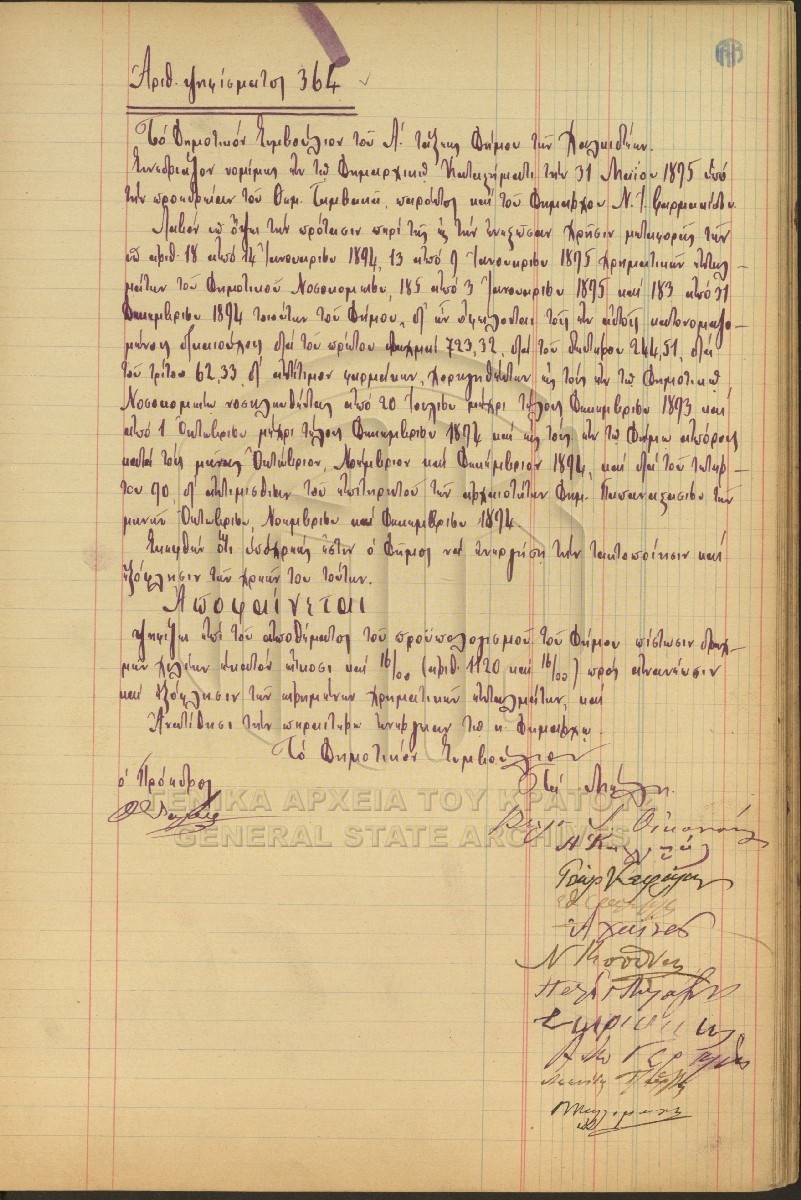 Ἀριθ. ψηφίσματος 364
Τὸ Δημοτικὸν Συμβούλιον τοῦ Α΄. τάξεως Δήμου τῶν Χαλκιδέων.
Συνεδριάζον νομίμως ἐν τῷ Δημαρχικῷ Καταστήματι τὴν 31 Μαΐου 1895 ὑπὸ
τὴν προεδρείαν τοῦ Θεμ. παρόντος καὶ τοῦ Δημάρχου Ν. Ι. Βαρμακίδου.
Λαβὸν ὑπ' ὄψει τὴν πρότασιν περὶ τῆς εἰς τὴν ἐνεστῶσαν χρῆσιν μεταφορᾶς τῶν
ὑπ' ἀριθ. 18 ἀπὸ 14 Ἰανουαρίου 1894, 13 ἀπὸ 9 Ἰανουαρίου 1895 χρηματικῶν ἐνταλ–
μάτων τοῦ Δημοτικοῦ Νοσοκομείου, 185 ἀπὸ 3 Ἰανουαρίου 1895 καὶ 183 ἀπὸ 31
Δεκεμβρίου 1894 τοιούτων τοῦ Δήμου, δι' ὧν ὀφείλονται τοῖς ἐν αὐτοῖς κατονομαζο–
μένοις δικαιούχοις διὰ τοῦ πρώτου δραχμαὶ 723,32, διὰ τοῦ δευτέρου 244,51, διὰ
τοῦ τρίτου 62,33 δι' ἀντίτιμον φαρμάκων, χορηγηθέντων εἰς τοὺς ἐν τῷ Δημοτικῷ
Νοσοκομείῳ νοσηλευθέντας ἀπὸ 20 Ἰουλίου μέχρι τέλους Δεκεμβρίου 1893 καὶ
ἀπὸ 1 Ὀκτωβρίου μέχρι τέλους Δεκεμβρίου 1894 καὶ εἰς τοὺς ἐν τῷ Δήμῳ ἀπόρους
κατὰ τοὺς μῆνας Ὀκτώβριον, Νοέμβριον καὶ Δεκέμβριον 1894, καὶ διὰ τοῦ τετάρ–
του 90, δι' ἀντιμισθίαν τοῦ ἐπιτηρητοῦ τῶν ἀρχαιοτήτων Δημ. Παπαναστασίου τῶν
μηνῶν Ὀκτωβρίου, Νοεμβρίου καὶ Δεκεμβρίου 1894
Σκεφθὲν ὅτι ὑπόχρεως ἐστὶν ὁ Δῆμος νὰ ἐνεργήσῃ τὴν τακτοποίησιν καὶ
ἐξόφλησιν τῶν χρεῶν του τούτων.
Ἀποφαίνεται
Ψηφίζει ἐπὶ τοῦ ἀποθέματος τοῦ προϋπολογισμοῦ τοῦ Δήμου πίστωσιν δραχ–
μῶν χιλίων ἑκατὸν εἴκοσι καὶ 16/00 (ἀριθ. 1120 καὶ 16/00) πρὸς ἀνανέωσιν
καὶ ἐξόφλησιν τῶν εἰρημένων χρηματικῶν ἐνταλμάτων, καὶ
Ἀνατίθησι τὴν περαιτέρω ἐνέργειαν τῷ κ. Δημάρχῳ.
Τὸ Δημοτικὸν Συμβούλιον
ὁ Πρόεδρος
Τὰ Μέλη
ΓΕΝΙΚΑ ΑΡΧΕΙΑ ΤΟΥ ΚΡΑΤΟΥΣ
GENERAL STATE ARCHIVES